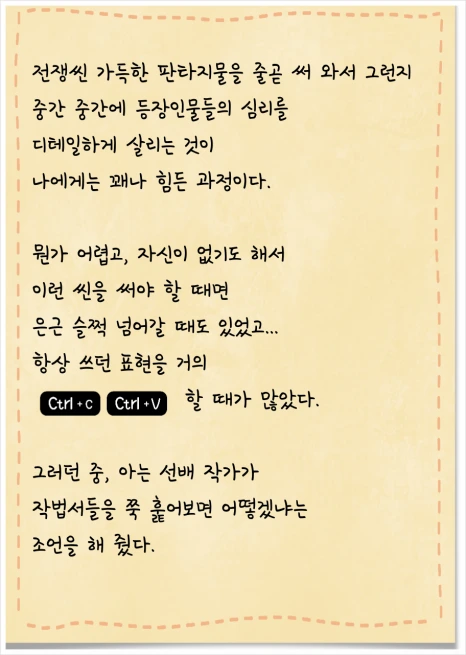 전쟁씬 가득한 판타지물을 줄곧 써 와서 그런지
중간 중간에 등장인물들의 심리를
디테일하게 살리는 것이
나에게는 꽤나 힘든 과정이다.
뭔가 어렵고, 자신이 없기도 해서
이런 씬을 써야 할 때면
은근 슬쩍 넘어갈 때도 있었고...
항상 쓰던 표현을 거의
Ctrl+C Ctrl+V 할 때가 많았다.
그러던 중, 아는 선배 작가가
작법서들을 쭉 훑어보면 어떻겠냐는
조언을 해 줬다.